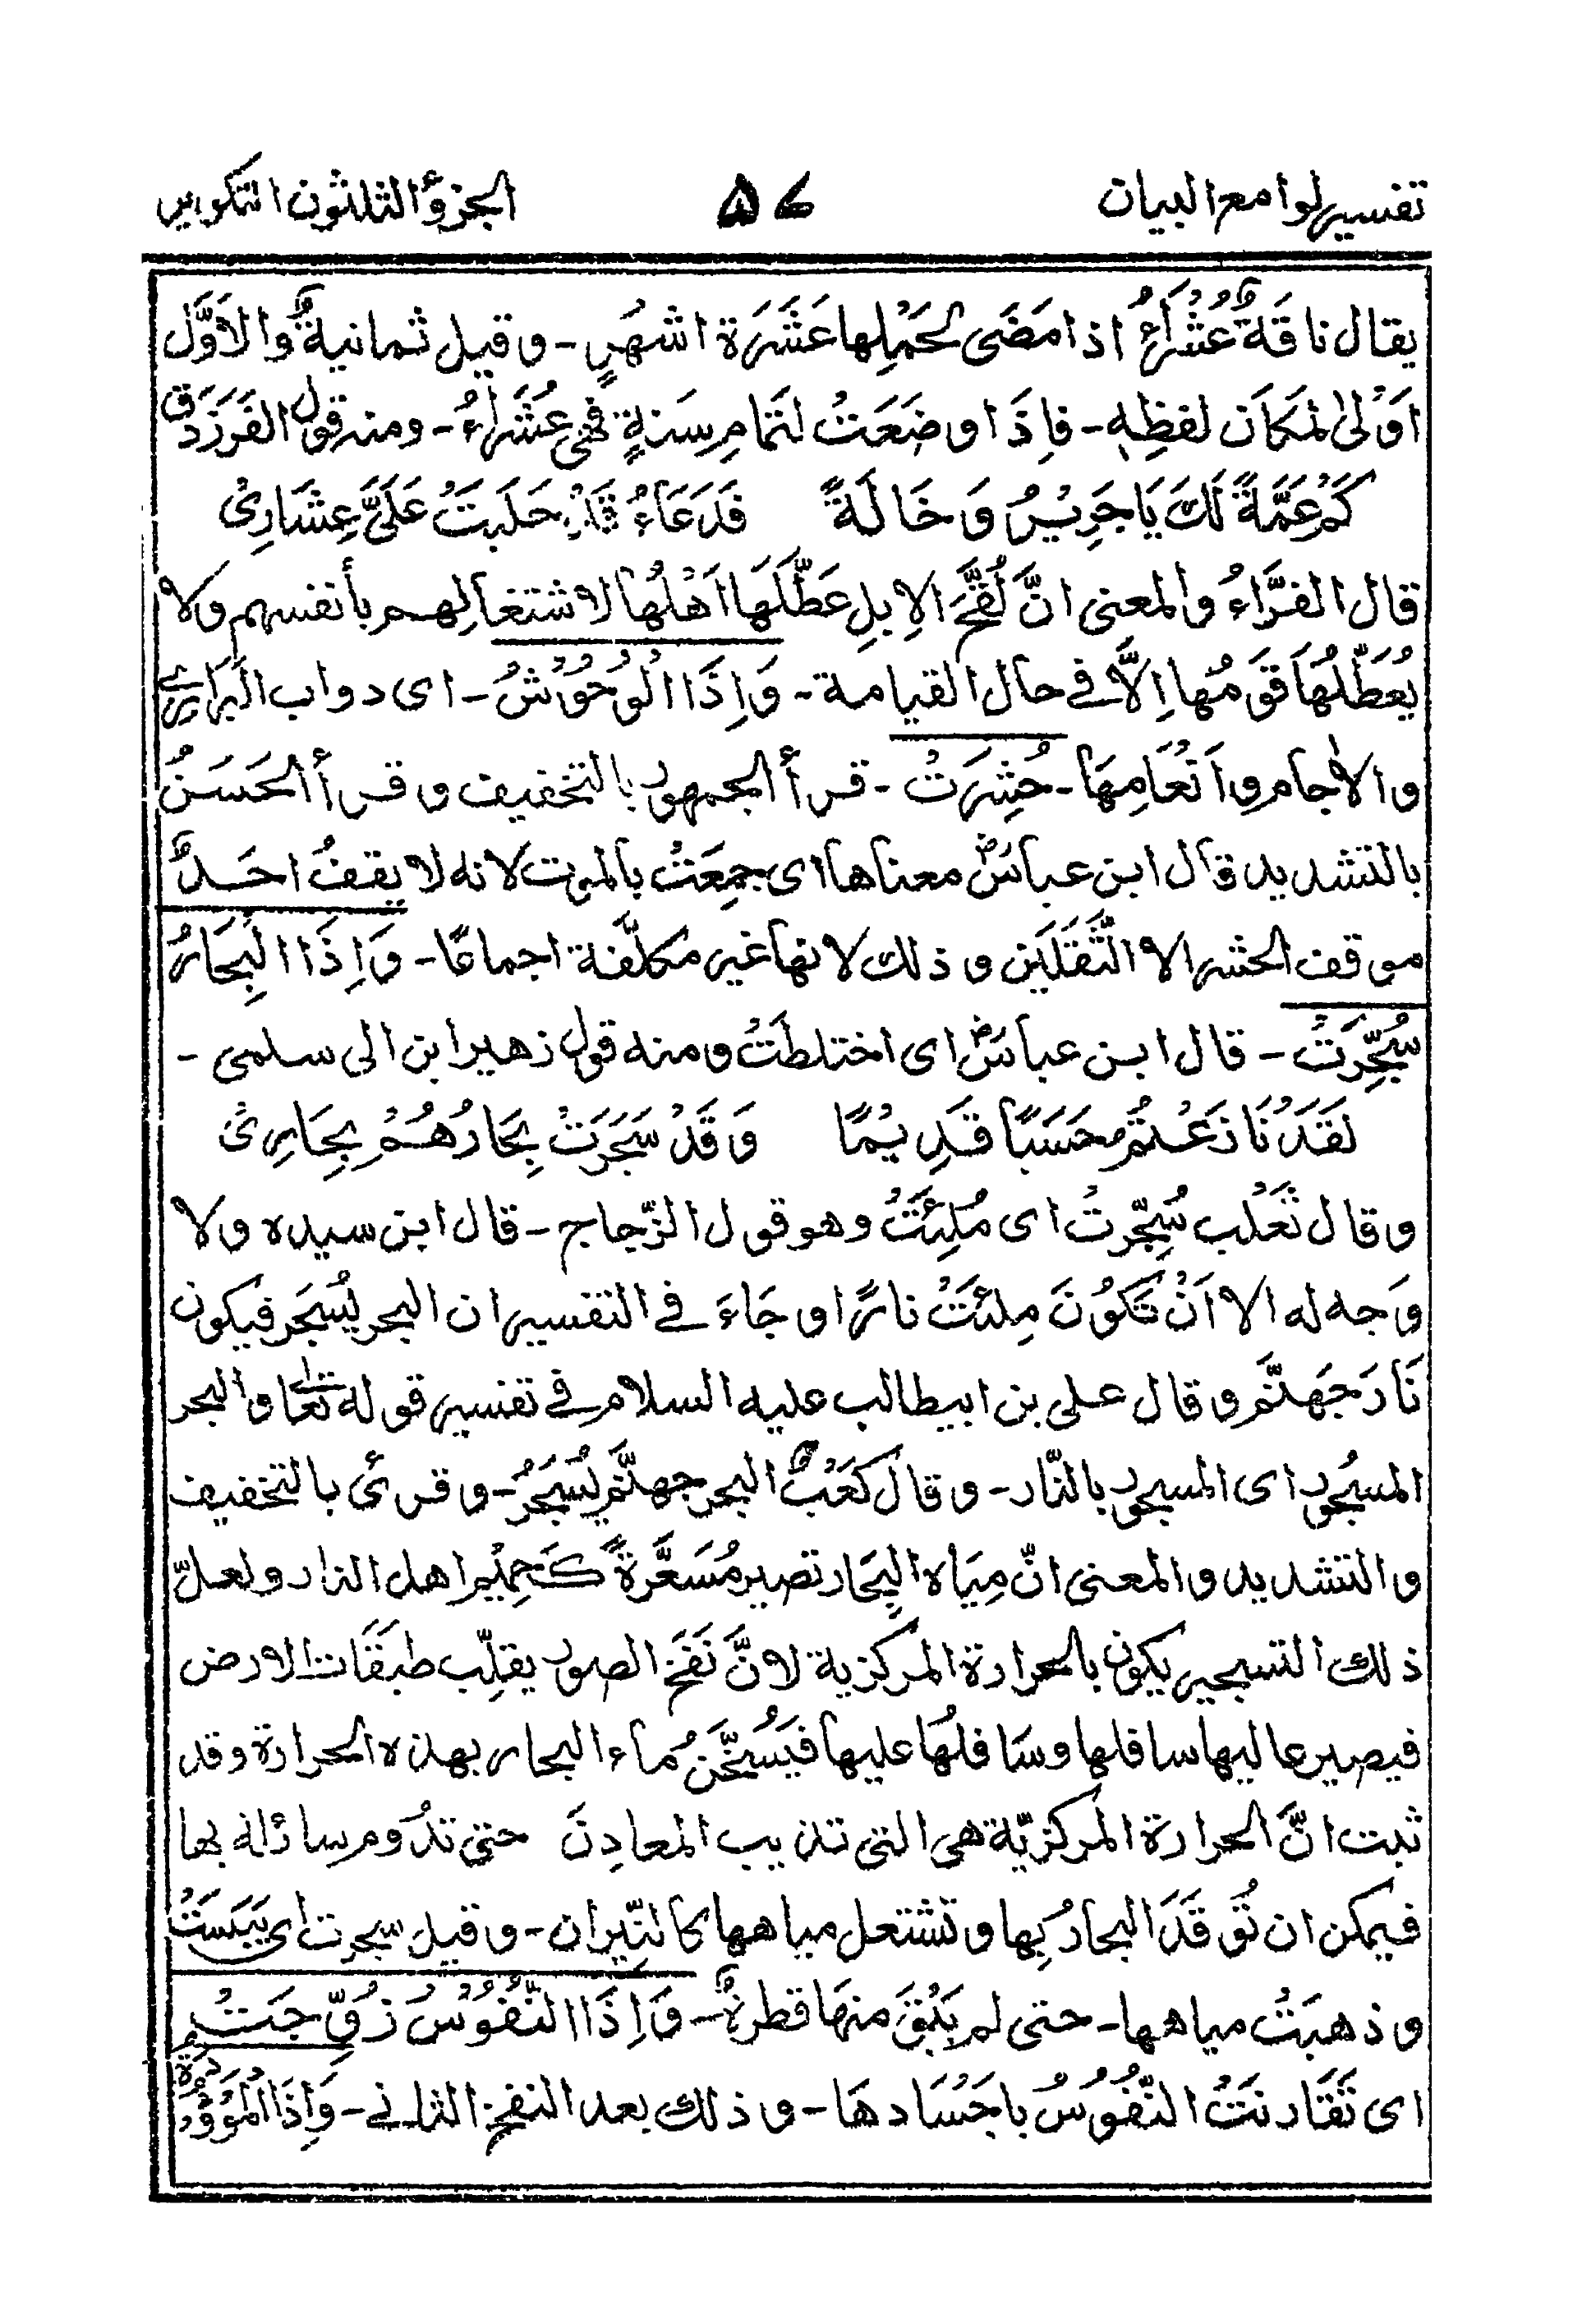 تفسير لوامع البيان ۵۷ الجزؤ الثلثون التكوير
يقال ناقَةٌ عُشَرَاءُ اذا مَضَى لحَمْلِها عَشَرَة اشهَرٍ - وقيل ثمانيةٌ والاَوَّل
اَوْلىٰ لمكَان لفظِهٖ - فاِذَا وضَعَتْ لتَمامِ سِنةٍ فهى عُشَرَاءُ - ومنه قول الفَرَزدَق
كَمْ عَمَّةً لَكَ يَا جَرِيْرُ وَخَالَةً فَدَعَاءُ قَدْ حَلَبَتْ عَلَىَّ عِشَارِىْ
قال الفرَّاءُ والمعنى انَّ لُقَّحَ الاِبلِ عَطَّلَهَا اَهْلُها لاشتغالِهم بأنفسهم ولا
يُعَطِّلُهَا قَومُها اِلاَّ فى حال القيامة - وَاِذَا الْوُحُوْشُ - اى دواب البَرَارِى
والاٰجام واَنعَامِهَا - حُشِرَتْ - قرأ الجمهور بالتخفيف وقرأ الحَسَنُ
بالتشديد قال ابن عباسؓ معناها اى جمِعَتْ بالموت لانه لا يقفُ احَدٌ
موقف الحشر الا الثَّقَلَيَن وذلك لانها غير مكلَّفة اجماعًا - وَاِذَا الْبِحَارُ
سُجِّرَتْ - قال ابن عباسؓ اى اختلطَتْ ومنه قول زهير ابن ابى سلمى -
لَقَدْ نَازَعْتُمْ حَسَبًا قَدِيْمًا وَقَدْ سَجَرَتْ بِحَارُهُمْ بِحَارِىْ
وقال ثَعْلَب سُجِّرتْ اى مُلِئَتْ وهو قول الزّجاج - قال ابن سيده ولا
وَجه له الا اَنْ تَكُوْنَ مِلئَتْ نارًا وجَاءَ فى التفسير ان البحر يُسْجَر فيكون
نَارَ جَهنَّم وقال على بن ابيطالب عليه السلام فى تفسير قوله تعالىٰ والبحر
المسْجُور اى المسجور بالنّار - وقال كَعْبٌ البحر جهنَّم يُسْجَرُ - وقرئ بالتخفيف
والتشديد والمعنى انّ مِيَاه البِحَار تصير مُسَعَّرَةً كَحَمِيْم اهل النار ولعلّ
ذلك التسجير يكون بالحرارة المركزية لانَّ نَفخَ الصور يقلِّب طبَقَات الارض
فيصير عاليها سافلها وسَافلُها عليها فَيُسَخَّنُ ماء البحار بهذه الحرارة وقد
ثبت انَّ الحرارة المركزيّة هى التى تذيب المعادِنَ حتى تدُوم سائلة بها
فيمكن ان تُوقَدَ البحارُ بِها وتشتعل مياهها كالنِّيران - وقيل سجرت اى يَبِسَتْ
وذهبَتْ مياهها - حتى لم يَبْقَ منهَا قطرةٌ - وَاِذَا النُّفُوْسُ زُوِّجَتْ
اى تَقَارنَتْ النُّفُوْسُ باجَسَادهَا - وذلك بعد النفخ الثانى - وَاِذَا الْمَوْؤٗدَةُ